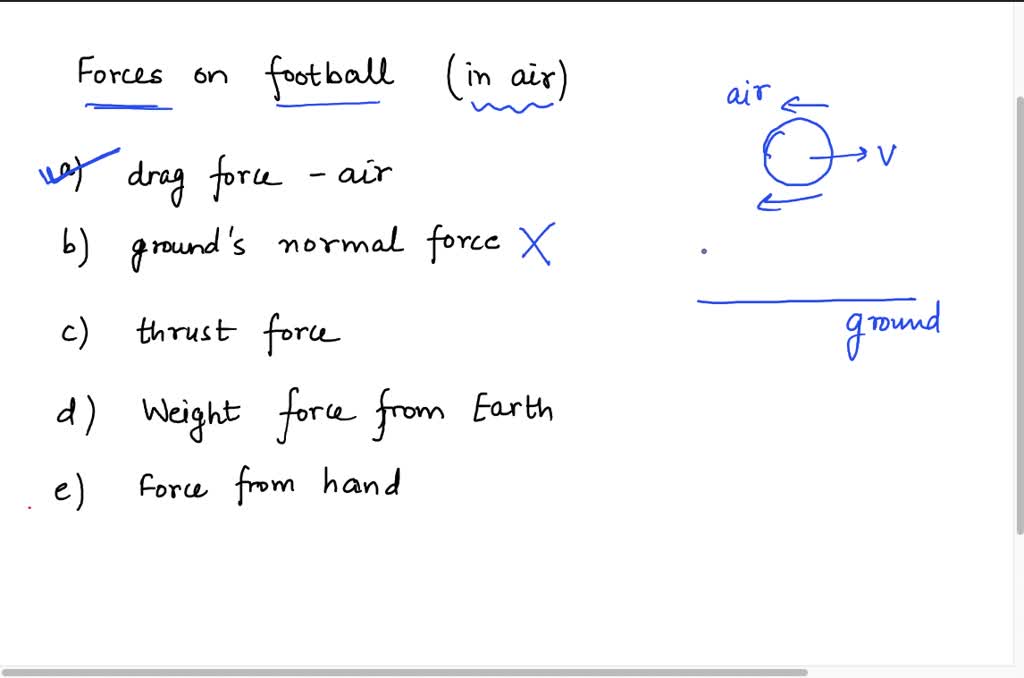 Forces on football (in air)
a) drag force - air
b) ground's normal force X
c) thrust force
d) Weight force from Earth
e) Force from hand
air
V
ground